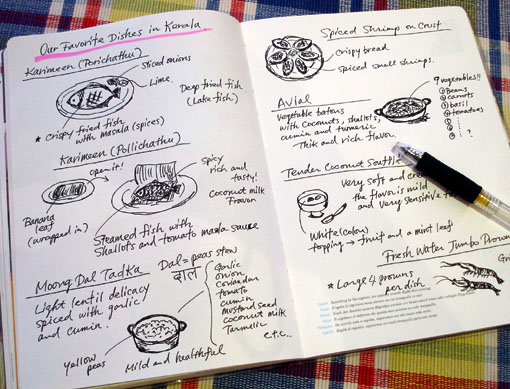 Our Favorite Dishes in Kerala.
Karimeen (Porichathu)
Sliced onions
Lime
Deep fried fish
(Lake fish.)
* Crispy fried fish
with masala (spices)
Karimeen (Pollichathu)
open it!
Banana
leaf
(wrapped in)
Spicy
rich and
tasty!
Coconut milk
Fravor
Steamed fish with
Shallots and tomato masala sauce
Moong Dal Tadka
Dal = peas stew
दाल
Light lentil delicacy
spiced with garlic
and cumin.
Garlic
onion
Coriander
tomato
cumin
mustard seed
coconut milk
Tarmelic
e.t.c...
Yellow
peas
Mild and healthful
Spiced Shrimp on Crust
Crispy bread
Spiced small shrimps.
Avial
Vegetable batons
with Coconuts, shallots,
cumin and turmeric
Thik and rich flavor.
9 vegetables!!
① Beans
② carrots
③ basil
④ tomatoes
⑤ :
⑥ :
: ?
⑨ ?
Tender Coconut Souffle
Very soft and
the flavor is mild
and very sensitive
White (color)
topping → fruit and a mint leaf
Fresh Water Jumbo Prawn
* Large 4 prowns
per dish
Gri